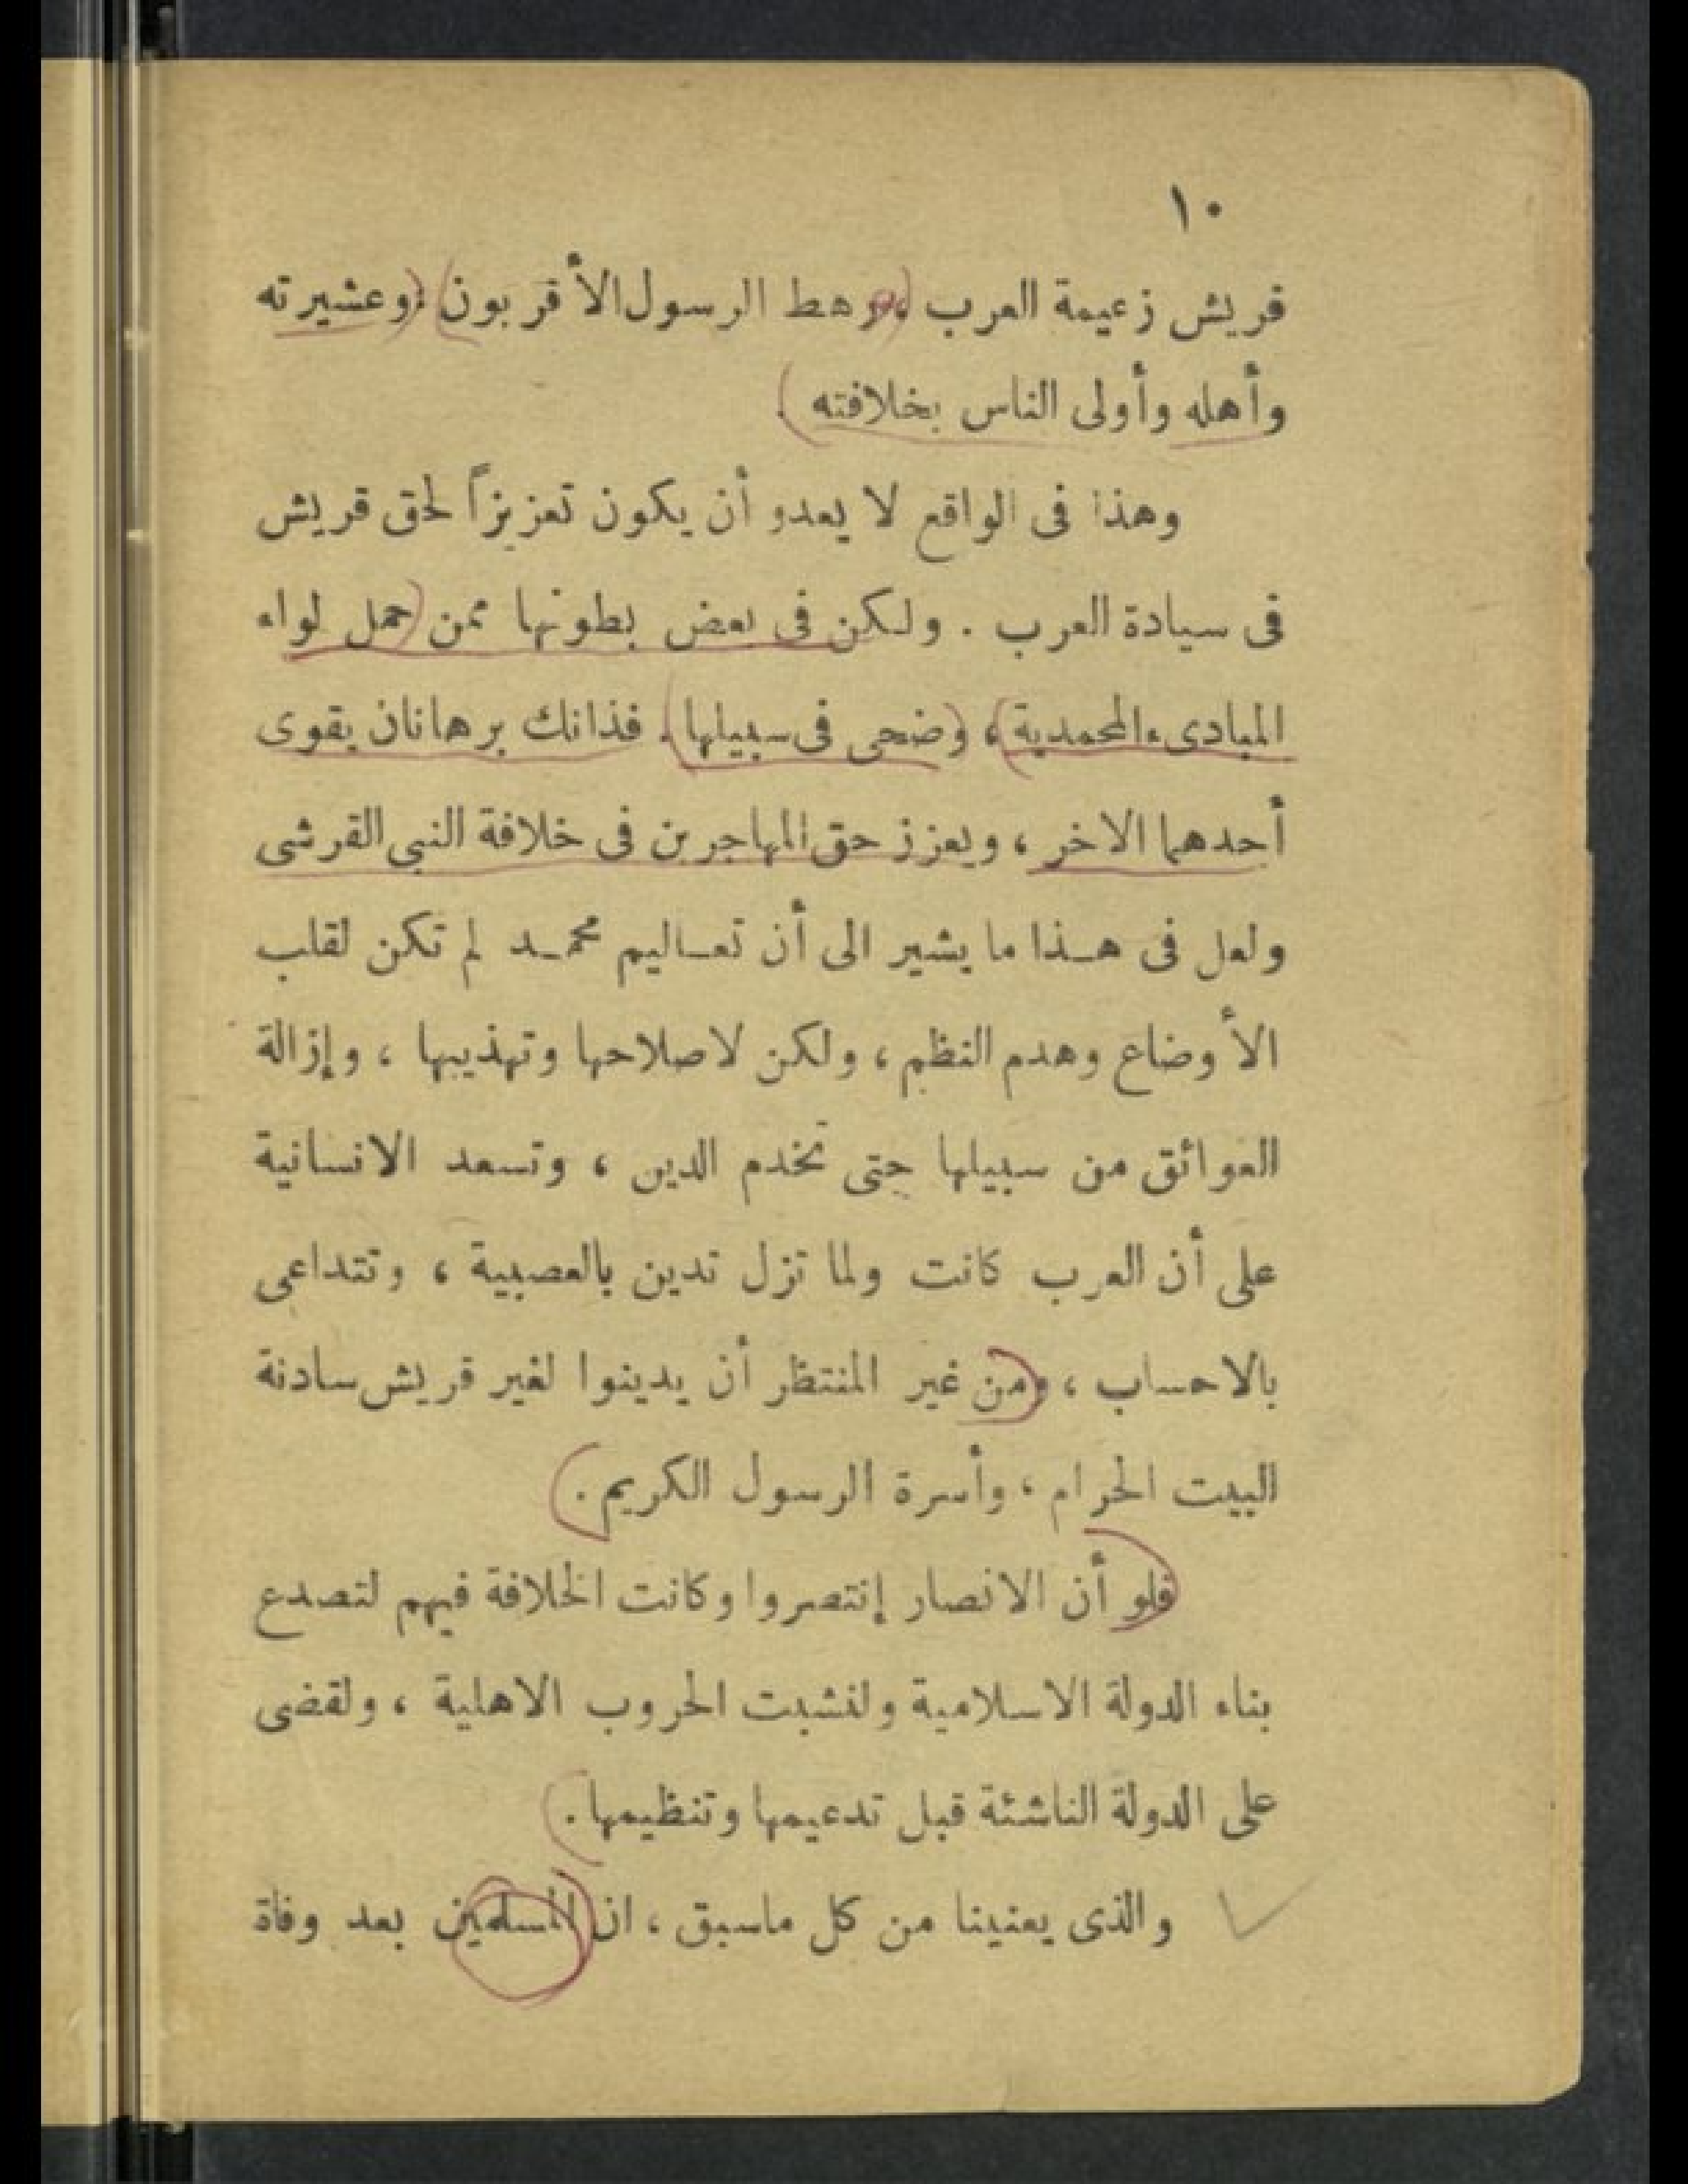 ١٠
قريش زعيمة العرب ، ورهط الرسول الأقربون ، وعشيرته
وأهله وأولى الناس بخلافته .
وهذا فى الواقع لا يعدو أن يكون تعزيزاً لحق قريش
فى سيادة العرب . ولكن فى بعض بطونها ممن حمل لواء
المبادىء المحمدية ، وضحى فى سبيلها . فذانك برهانان يقوى
أحدهما الاخر ، ويعزز حق المهاجرين فى خلافة النبى القرشى
ولعل فى هـذا ما يشير الى أن تعـاليم محمـد لم تكن لقلب
الأوضاع وهدم النظم ، ولكن لاصلاحها وتهذيبها ، وإزالة
العوائق من سبيلها حتى تخدم الدين ، وتسعد الانسانية
على أن العرب كانت ولما تزل تدين بالعصبية ، وتتداعى
بالاحساب ، ومن غير المنتظر أن يدينوا لغير قريش سادنة
البيت الحرام ، وأسرة الرسول الكريم .
فلو أن الانصار إنتصروا وكانت الخلافة فيهم لتصدع
بناء الدولة الاسلامية ولنشبت الحروب الاهلية ، ولقضى
على الدولة الناشئة قبل تدعيمها وتنظيمها .
والذى يعنينا من كل ماسبق ، ان المسلمين بعد وفاة